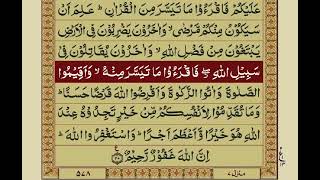 عَلَيۡكُمۡ فَاقۡرَءُوۡا مَا تَيَسَّرَ مِنَ الۡقُرۡاٰنِؕ عَلِمَ اَنۡ
سَيَكُوۡنُ مِنۡكُمۡ مَّرۡضٰىۙ وَاٰخَرُوۡنَ يَضۡرِبُوۡنَ فِى الۡاَرۡضِ
يَبۡتَغُوۡنَ مِنۡ فَضۡلِ اللّٰهِۙ وَاٰخَرُوۡنَ يُقَاتِلُوۡنَ فِىۡ
سَبِيۡلِ اللّٰهِ ۖ فَاقۡرَءُوۡا مَا تَيَسَّرَ مِنۡهُۙ وَاَقِيۡمُوا
الصَّلٰوةَ وَاٰتُوا الزَّكٰوةَ وَاَقۡرِضُوا اللّٰهَ قَرۡضًا حَسَنًاؕ
وَمَا تُقَدِّمُوۡا لِاَنۡفُسِكُمۡ مِّنۡ خَيۡرٍ تَجِدُوۡهُ عِنۡدَ
اللّٰهِ هُوَ خَيۡرًا وَّاَعۡظَمَ اَجۡرًاؕ وَاسۡتَغۡفِرُوا اللّٰهَؕ
اِنَّ اللّٰهَ غَفُوۡرٌ رَّحِيۡمٌ ۲۰
منزل ۷
۵۷۸